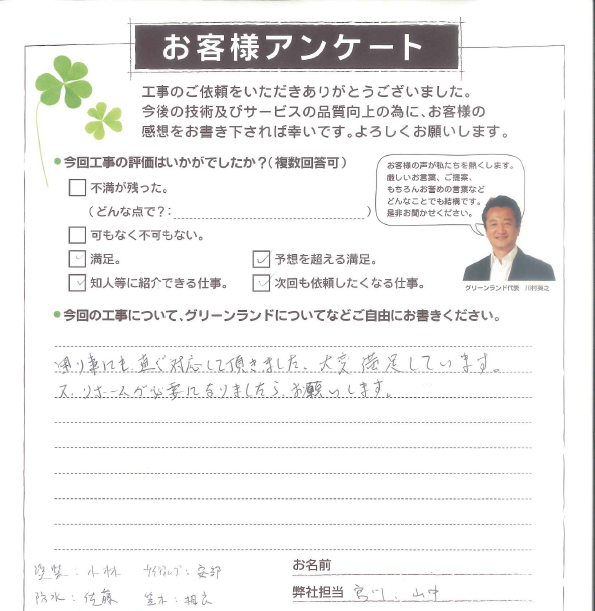 お客様アンケート
工事のご依頼をいただきありがとうございました。
今後の技術及びサービスの品質向上の為に、お客様の
感想をお書き下されば幸いです。よろしくお願いします。
●今回工事の評価はいかがでしたか?(複数回答可)
不満が残った。
(どんな点で?: )
可もなく不可もない。
満足。
予想を超える満足。
知人等に紹介できる仕事。
次回も依頼したくなる仕事。
お客様の声が私たちを熱くします。
厳しいお言葉、ご提案、
もちろんお誉めの言葉など
どんなことでも結構です。
是非お聞かせください。
グリーンランド代表
●今回の工事について、グリーンランドについてなどご自由にお書きください。
困り事にも直ぐ対応して頂きました、大変満足しています。
又、リホームが必要になりましたら、お願いします。
塗装:小林
安部
防水:佐藤
お名前
弊社担当 宮川、山中